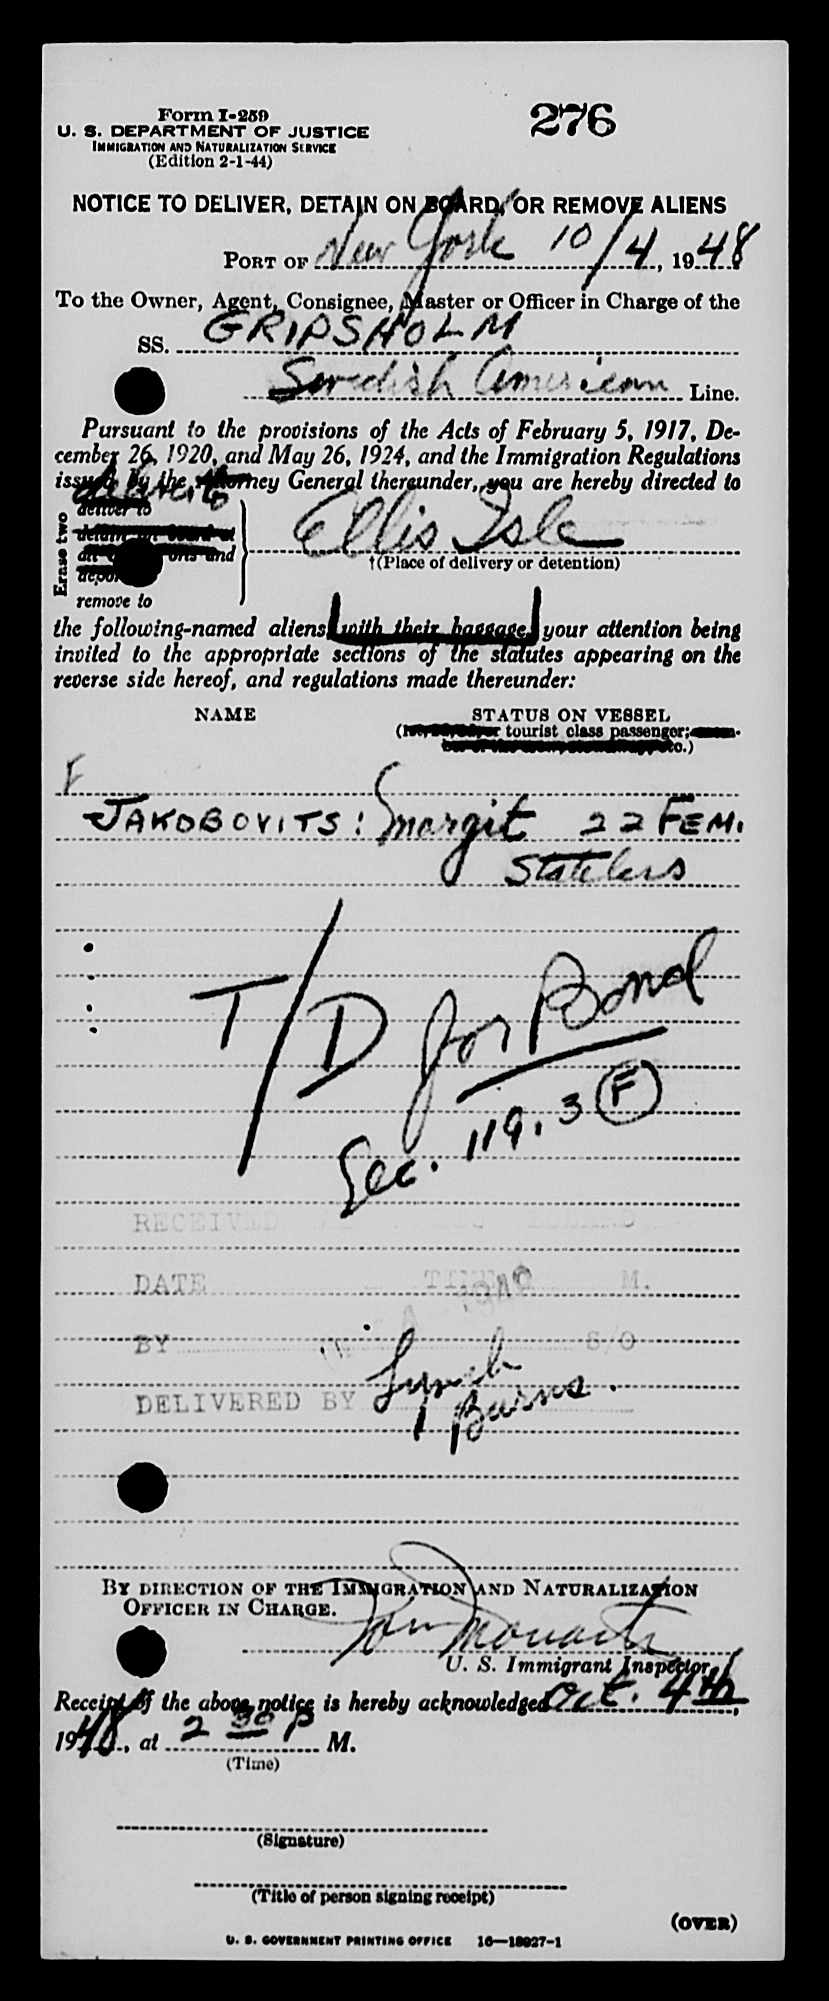 Form I-259
276
U. S. DEPARTMENT OF JUSTICE
IMMIGRATION AND NATURALIZATION SERVICE
(Edition 2-1-44)
NOTICE TO DELIVER, DETAIN ON BOARD, OR REMOVE ALIENS
PORT OF New York 10/4, 1948
To the Owner, Agent, Consignee, Master or Officer in Charge of the
SS. GRIPSHOLM
Swedish American Line.
Pursuant to the provisions of the Acts of February 5, 1917, De-
cember 26, 1920, and May 26, 1924, and the Immigration Regulations
issued by the Attorney General thereunder, you are hereby directed to
deliver to
Erase two
deliver to
detain on board at
and
remove to
Ellis Isle
†(Place of delivery or detention)
the following-named aliens, with their baggage, your attention being
invited to the appropriate sections of the statutes appearing on the
reverse side hereof, and regulations made thereunder:
NAME
STATUS ON VESSEL
tourist class passenger;
JAKOBOVITS: Margit 22 FEM.
Stateless
T/D for Bond
Sec. 119.3 (F)
RECEIVED
DATE TIME M.
BY S/O
DELIVERED BY Lynch
Burns.
BY DIRECTION OF THE IMMIGRATION AND NATURALIZATION
OFFICER IN CHARGE.
U. S. Immigrant Inspector.
Receipt of the above notice is hereby acknowledged Oct. 4th,
1948, at 2 30 P M.
(Time)
(Signature)
(Title of person signing receipt)
(OVER)
U. S. GOVERNMENT PRINTING OFFICE 16—18027-1